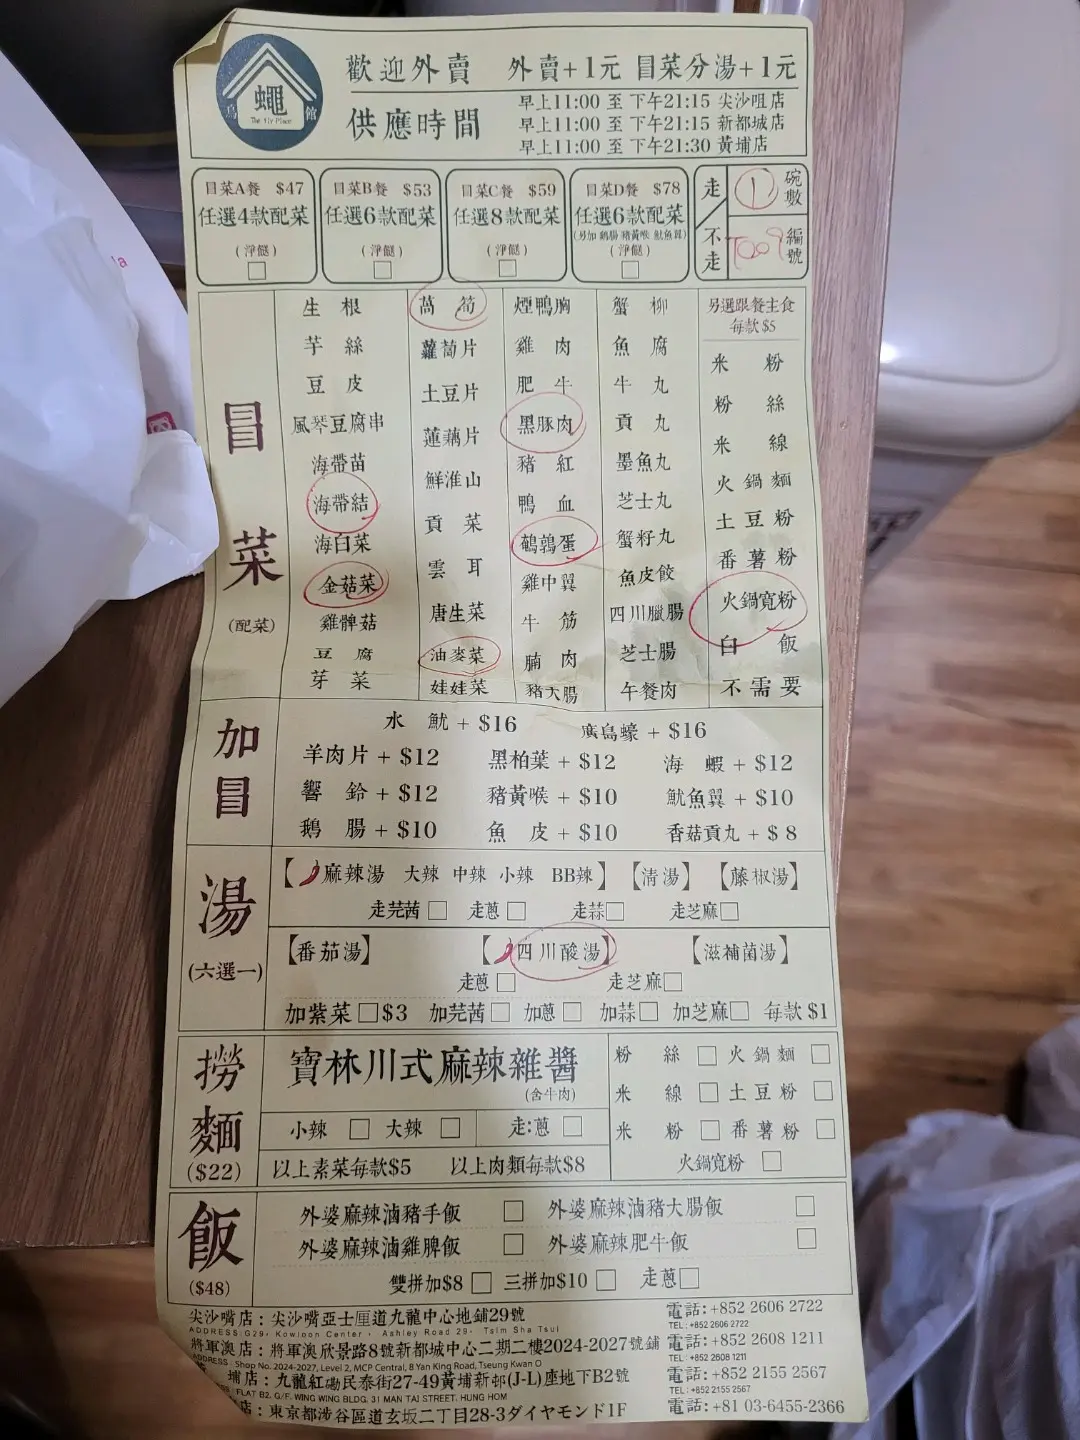 歡迎外賣 外賣+1元 冒菜分湯+1元
蠅 館
The Fly Place
供應時間
早上11:00 至 下午21:15 尖沙咀店
早上11:00 至 下午21:15 新都城店
早上11:00 至 下午21:30 黃埔店
冒菜A餐 $47
任選4款配菜
(淨餸)
冒菜B餐 $53
任選6款配菜
(淨餸)
冒菜C餐 $59
任選8款配菜
(淨餸)
冒菜D餐 $78
任選6款配菜
(另加 鵝腸 豬黃喉 魷魚翼)
(淨餸)
走/不走
1 碗數
T009 編號
冒菜
(配菜)
生根
芋絲
豆皮
風琴豆腐串
海帶苗
海帶結
海白菜
金菇菜
雞髀菇
豆腐
芽菜
萵筍
蘿蔔片
土豆片
蓮藕片
鮮淮山
貢菜
雲耳
唐生菜
油麥菜
娃娃菜
煙鴨胸
雞肉
肥牛
黑豚肉
豬紅
鴨血
鵪鶉蛋
雞中翼
牛筋
腩肉
豬大腸
蟹柳
魚腐
牛丸
貢丸
墨魚丸
芝士丸
蟹籽丸
魚皮餃
四川臘腸
芝士腸
午餐肉
另選跟餐主食
每款$5
米粉
粉絲
米線
火鍋麵
土豆粉
番薯粉
火鍋寬粉
白飯
不需要
加冒
水魷 + $16 廣島蠔 + $16
羊肉片 + $12 黑柏葉 + $12 海蝦 + $12
響鈴 + $12 豬黃喉 + $10 魷魚翼 + $10
鵝腸 + $10 魚皮 + $10 香菇貢丸 + $8
湯
(六選一)
【麻辣湯 大辣 中辣 小辣 BB辣】【清湯】【藤椒湯】
走芫茜□ 走蔥□ 走蒜□ 走芝麻□
【番茄湯】 【四川酸湯】 【滋補菌湯】
走蔥□ 走芝麻□
加紫菜□$3 加芫茜□ 加蔥□ 加蒜□ 加芝麻□ 每款$1
撈麵
($22)
寶林川式麻辣雜醬
(含牛肉)
小辣 □ 大辣 □ 走:蔥 □
以上素菜每款$5 以上肉類每款$8
粉絲 □ 火鍋麵 □
米線 □ 土豆粉 □
米粉 □ 番薯粉 □
火鍋寬粉 □
飯
($48)
外婆麻辣滷豬手飯 □ 外婆麻辣滷豬大腸飯 □
外婆麻辣滷雞脾飯 □ 外婆麻辣肥牛飯 □
雙拼加$8 □ 三拼加$10 □ 走蔥□
尖沙嘴店：尖沙嘴亞士厘道九龍中心地鋪29號 電話:+852 2606 2722
ADDRESS:G29, Kowloon Center, Ashley Road 29, Tsim Sha Tsui TEL:+852 2606 2722
將軍澳店：將軍澳欣景路8號新都城中心二期二樓2024-2027號鋪 電話:+852 2608 1211
ADDRESS: Shop No. 2024-2027, Level 2, MCP Central, 8 Yan King Road, Tseung Kwan O TEL:+852 2608 1211
埔店：九龍紅磡民泰街27-49黃埔新邨(J-L)座地下B2號 電話:+852 2155 2567
FLAT B2, G/F, WING WING BLDG, 31 MAN TAI STREET, HUNG HOM TEL:+852 2155 2567
店：東京都渋谷區道玄坂二丁目28-3ダイヤモンド1F 電話:+81 03-6455-2366